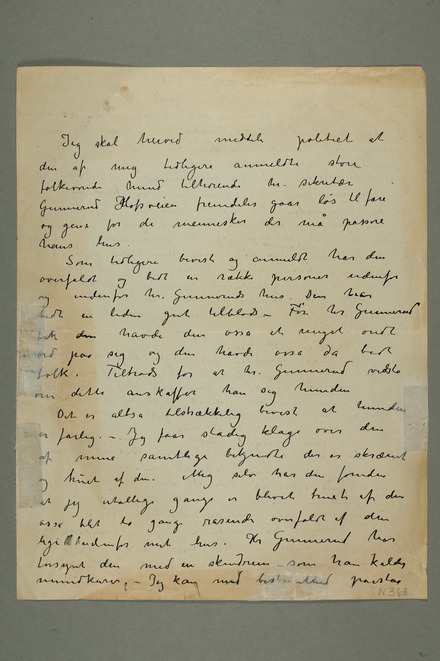 Jeg skal herved meddele politiet at
den af mig tidligere anmeldte store
folkevonde hund tilhørende hr. sekretær
Gunnerud Hofsveien fremdeles gaar løs til fare
og gene for de mennesker der må passere
hans hus.
Som tidligere bevist og anmeldt har den
overfaldt og bidt en række personer udenfor
og indenfor hr. Gunneruds hus. Den har
bidt en liden gut tilblods – Før hr Gunnerud
fik den havde den ossa et meget ondt
ord paa seg og den havde ossa da bidt
folk. Tiltrods for at hr. Gunnerud vidste
om dette anskaffer han seg hunden
Det er altsa tilstrækkelig bevist at hunden
er farlig. – Jeg faar stadig klage over den
af mine samtlige bekjendte der er skræmt
og truet af den. Meg selv har den foruden
at jeg utallige gange er blevet truet af den
osse blet to gange rasende overfaldt af den
lige udenfor mit hus. Hr Gunnerud har
forsynt den med en skindrem – som han kalder
mundkurv, – Jeg kan med bestemthed paastaa
N 368